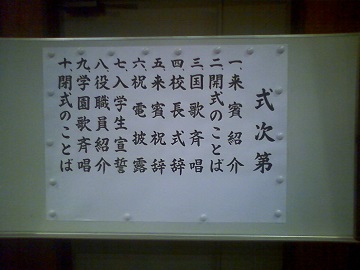 式次第
一、来賓紹介
二、開式のことば
三、国歌斉唱
四、校長式辞
五、来賓祝辞
六、祝電披露
七、入学生宣誓
八、役職員紹介
九、学園歌斉唱
十、閉式のことば